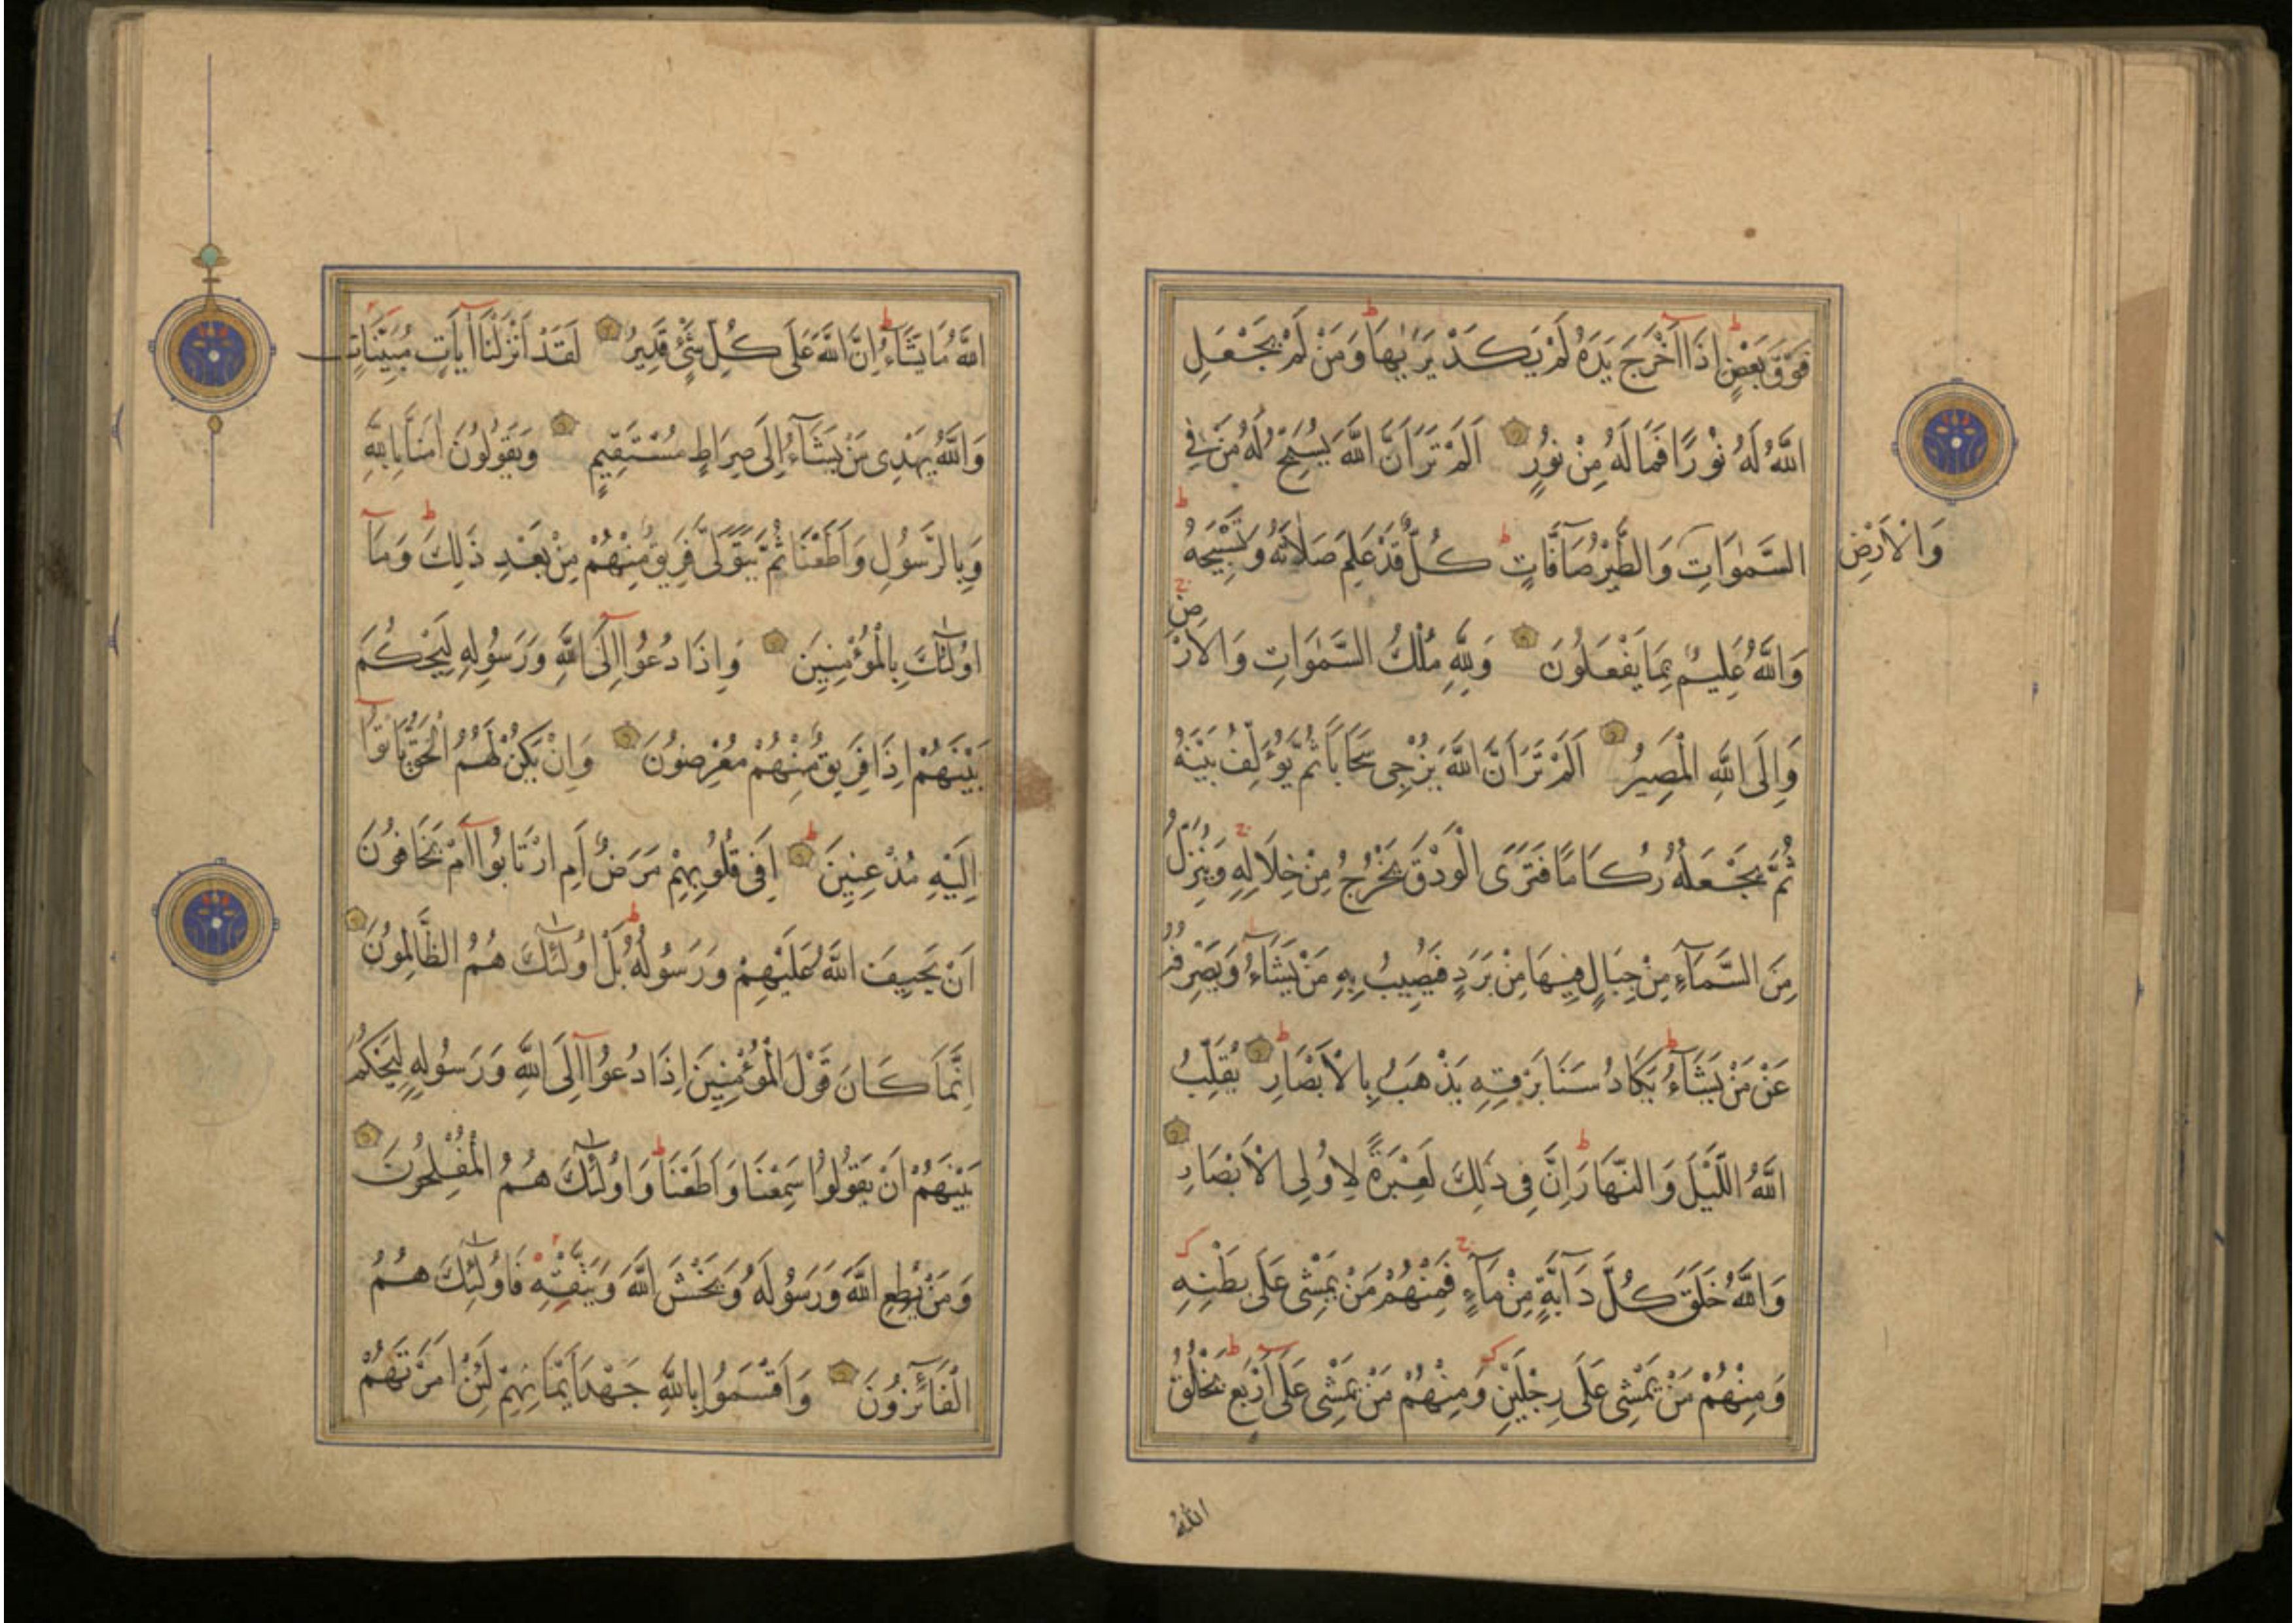 فَوْقَ بَعْضٍ اِذَا اَخْرَجَ يَدَهُ لَمْ يَكَدْ يَرٰيهَا وَمَنْ لَمْ يَجْعَلِ
اللّٰهُ لَهُ نُوْرًا فَمَا لَهُ مِنْ نُوْرٍ اَلَمْ تَرَ اَنَّ اللّٰهَ يُسَبِّحُ لَهُ مَنْ فِي
السَّمٰوَاتِ وَالطَّيْرُ صَآفَّاتٍ كُلٌّ قَدْ عَلِمَ صَلَاتَهُ وَتَسْبِيْحَهُ
وَالْاَرْضِ
وَاللّٰهُ عَلِيْمٌ بِمَا يَفْعَلُوْنَ وَلِلّٰهِ مُلْكُ السَّمٰوَاتِ وَالْاَرْضِ
وَاِلَى اللّٰهِ الْمَصِيْرُ اَلَمْ تَرَ اَنَّ اللّٰهَ يُزْجِى سَحَابًا ثُمَّ يُؤَلِّفُ بَيْنَهُ
ثُمَّ يَجْعَلُهُ رُكَامًا فَتَرَى الْوَدْقَ يَخْرُجُ مِنْ خِلَالِهِ وَيُنَزِّلُ
مِنَ السَّمَآءِ مِنْ جِبَالٍ فِيْهَا مِنْ بَرَدٍ فَيُصِيْبُ بِهِ مَنْ يَشَآءُ وَيَصْرِفُهُ
عَنْ مَنْ يَشَآءُ يَكَادُ سَنَا بَرْقِهِ يَذْهَبُ بِالْاَبْصَارِ يُقَلِّبُ
اللّٰهُ اللَّيْلَ وَالنَّهَارَ اِنَّ فِى ذٰلِكَ لَعِبْرَةً لِاُولِى الْاَبْصَارِ
وَاللّٰهُ خَلَقَ كُلَّ دَآبَّةٍ مِنْ مَآءٍ فَمِنْهُمْ مَنْ يَمْشِى عَلَى بَطْنِهِ
وَمِنْهُمْ مَنْ يَمْشِى عَلَى رِجْلَيْنِ وَمِنْهُمْ مَنْ يَمْشِى عَلَى اَرْبَعٍ يَخْلُقُ
اللّٰهُ
اللّٰهُ مَا يَشَآءُ اِنَّ اللّٰهَ عَلَى كُلِّ شَىْءٍ قَدِيْرٌ لَقَدْ اَنْزَلْنَا اٰيَاتٍ مُبَيِّنَاتٍ
وَاللّٰهُ يَهْدِى مَنْ يَشَآءُ اِلَى صِرَاطٍ مُسْتَقِيْمٍ وَيَقُوْلُوْنَ اٰمَنَّا بِاللّٰهِ
وَبِالرَّسُوْلِ وَاَطَعْنَا ثُمَّ يَتَوَلَّى فَرِيْقٌ مِنْهُمْ مِنْ بَعْدِ ذٰلِكَ وَمَآ
اُولٰٓئِكَ بِالْمُؤْمِنِيْنَ وَاِذَا دُعُوْا اِلَى اللّٰهِ وَرَسُوْلِهِ لِيَحْكُمَ
بَيْنَهُمْ اِذَا فَرِيْقٌ مِنْهُمْ مُعْرِضُوْنَ وَاِنْ يَكُنْ لَهُمُ الْحَقُّ يَاْتُوْا
اِلَيْهِ مُذْعِنِيْنَ اَفِى قُلُوْبِهِمْ مَرَضٌ اَمِ ارْتَابُوْا اَمْ يَخَافُوْنَ
اَنْ يَحِيْفَ اللّٰهُ عَلَيْهِمْ وَرَسُوْلُهُ بَلْ اُولٰٓئِكَ هُمُ الظَّالِمُوْنَ
اِنَّمَا كَانَ قَوْلَ الْمُؤْمِنِيْنَ اِذَا دُعُوْا اِلَى اللّٰهِ وَرَسُوْلِهِ لِيَحْكُمَ
بَيْنَهُمْ اَنْ يَقُوْلُوْا سَمِعْنَا وَاَطَعْنَا وَاُولٰٓئِكَ هُمُ الْمُفْلِحُوْنَ
وَمَنْ يُطِعِ اللّٰهَ وَرَسُوْلَهُ وَيَخْشَ اللّٰهَ وَيَتَّقْهِ فَاُولٰٓئِكَ هُمُ
الْفَآئِزُوْنَ وَاَقْسَمُوْا بِاللّٰهِ جَهْدَ اَيْمَانِهِمْ لَئِنْ اَمَرْتَهُمْ